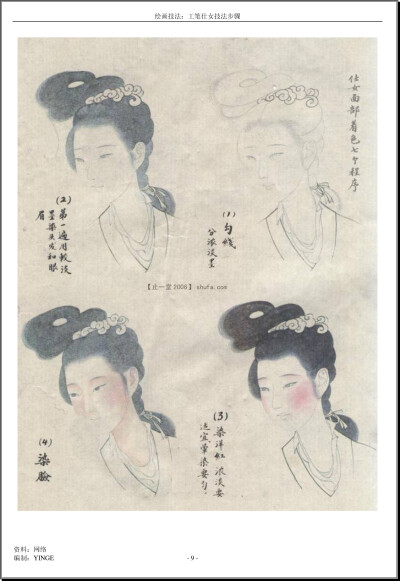 绘画技法：工笔仕女技法步骤
仕女面部着色七个程序
(1)
勾线
分浓淡墨
(2)
第一遍用較淡
墨染头发和眼
眉
【止一堂2006】shufa.com
(3)
染洋红浓淡要
适宜晕染要匀。
(4)
染脸
资料：网络
编制：YINGE
- 9 -